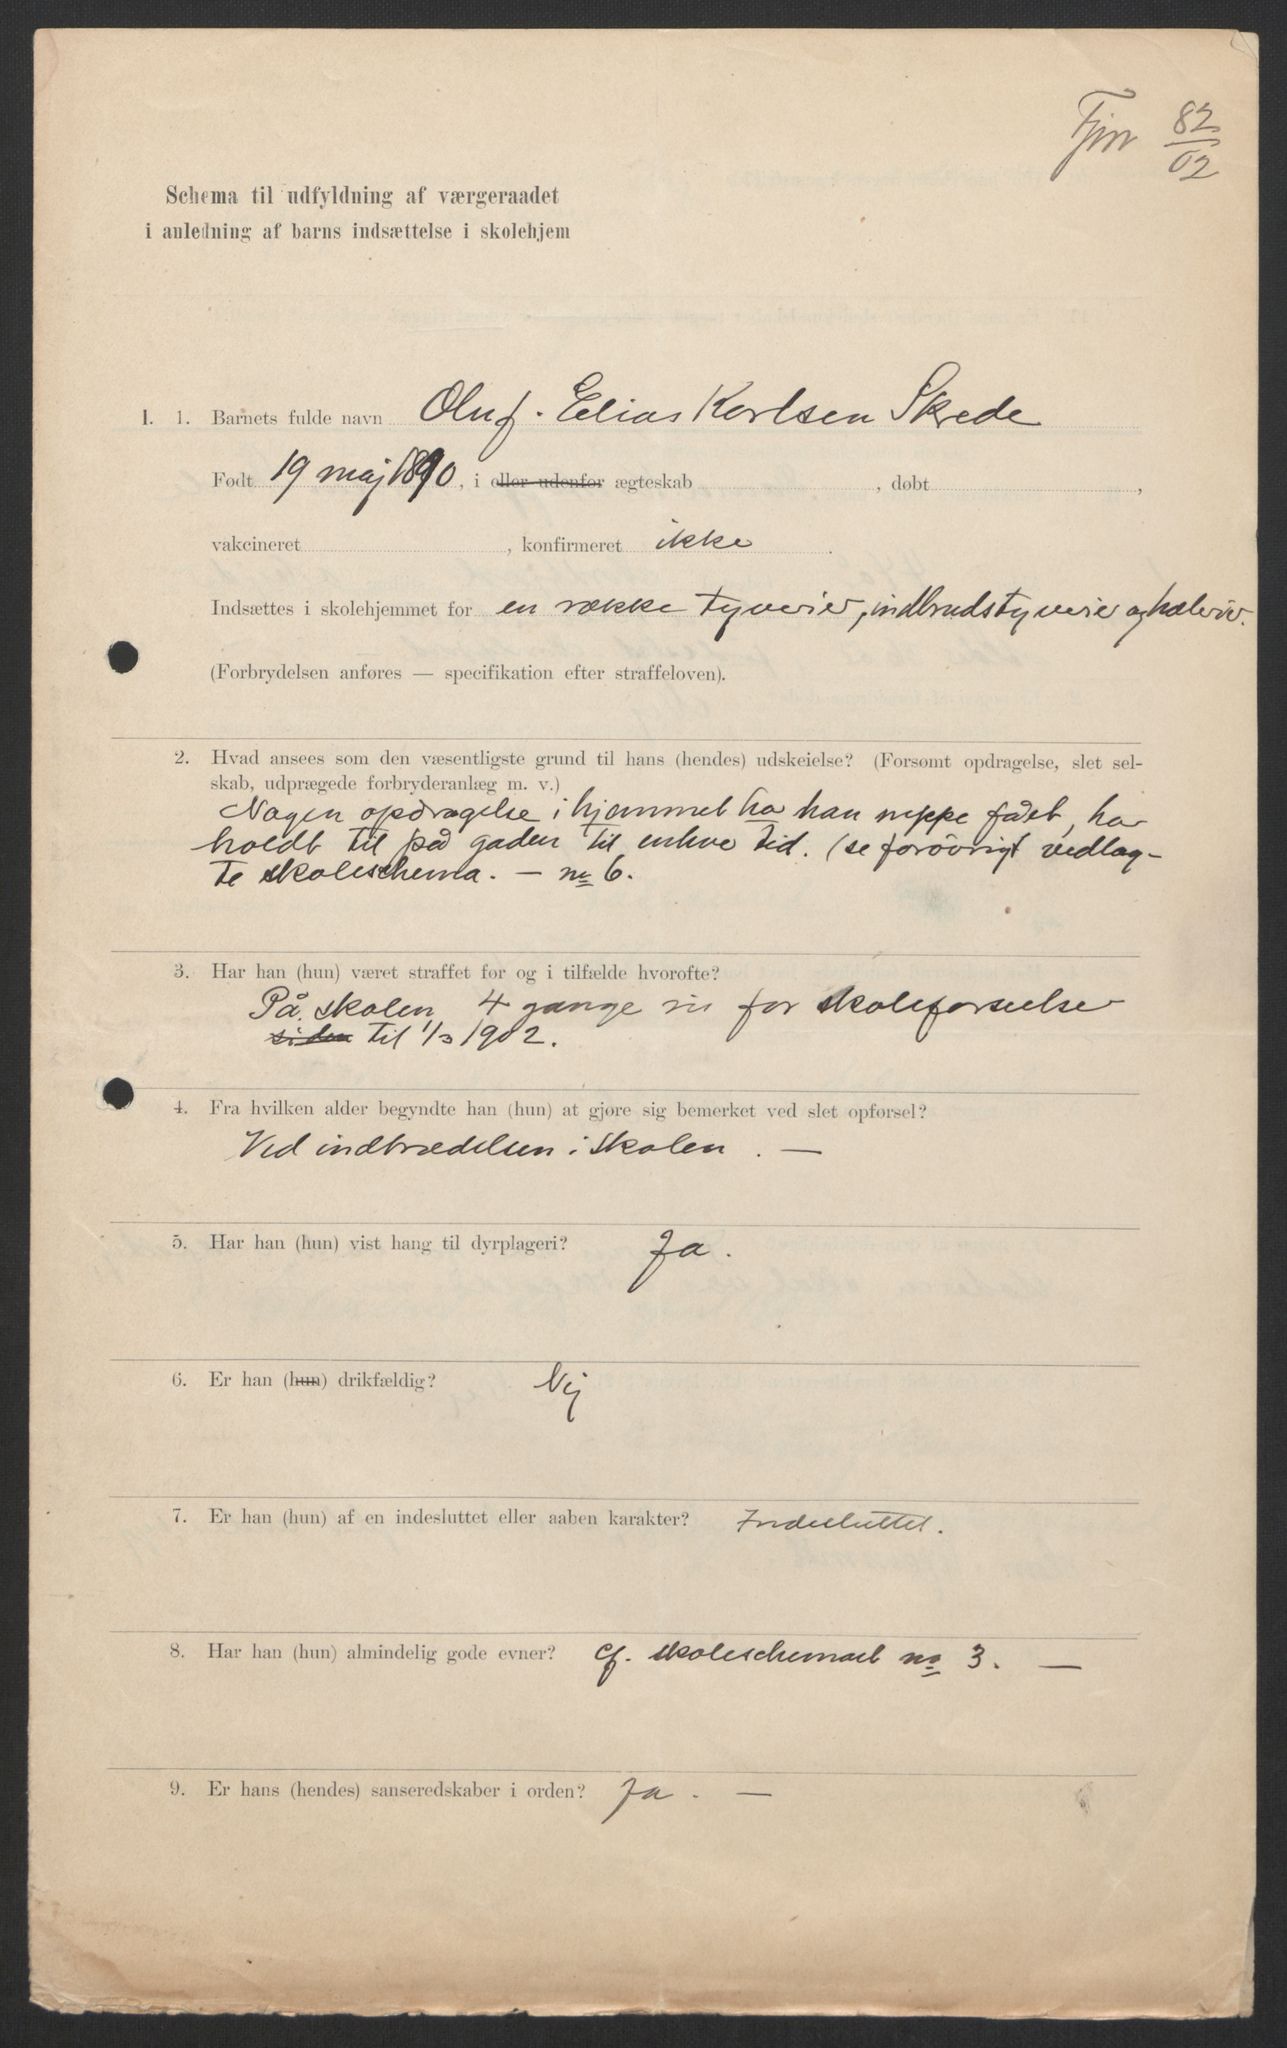 Fjnr 82/02
Schema til udfyldning af værgeraadet
i anledning af barns indsættelse i skolehjem
I. 1. Barnets fulde navn Oluf. Elias Karlsen Skrede
Født 19 maj 1890, i eller udenfor ægteskab , døbt ,
vakcineret , konfirmeret ikke .
Indsættes i skolehjemmet for en række tyverier, indbrudstyverier og hæleri.
(Forbrydelsen anføres — specifikation efter straffeloven).
2. Hvad ansees som den væsentligste grund til hans (hendes) udskeielse? (Forsømt opdragelse, slet sel-
skab, udprægede forbryderanlæg m. v.)
Nogen opdragelse i hjemmet ha han neppe fådt, har
holdt til på gaden til enhver tid. (se forövrigt vedlag-
te skoleschema. — no 6.
3. Har han (hun) været straffet før og i tilfælde hvorofte?
På skolen 4 gange ris for skoleforseelser
siden til 1/3 1902.
4. Fra hvilken alder begyndte han (hun) at gjøre sig bemerket ved slet opførsel?
Ved indtrædelsen i skolen . —
5. Har han (hun) vist hang til dyrplageri? Ja .
6. Er han (hun) drikfældig? Nej
7. Er han (hun) af en indesluttet eller aaben karakter? Indesluttet.
8. Har han (hun) almindelig gode evner? cf. skoleschemaet no 3. —
9. Er hans (hendes) sanseredskaber i orden? Ja . —